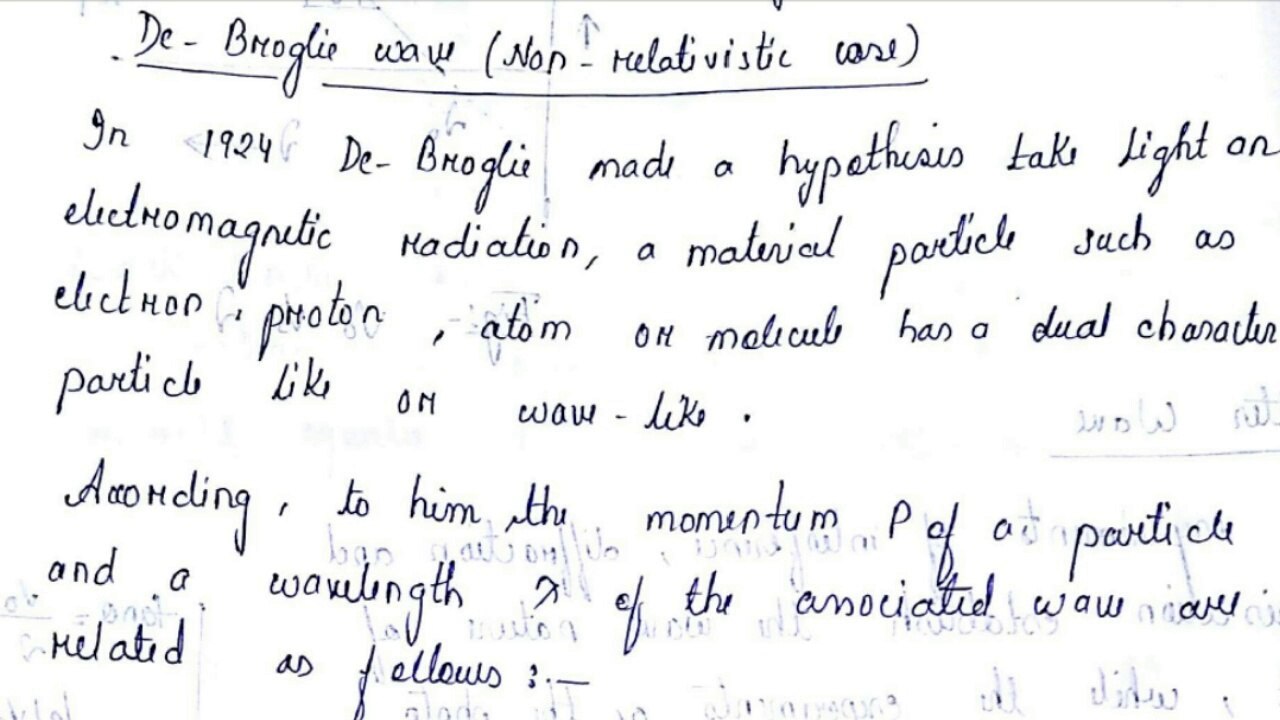 De-Broglie wave (Non-relativistic case)
In 1924 De-Broglie made a hypothesis take light or
electromagnetic radiation, a material particle such as
electron, proton, atom or molecule has a dual character
particle like or wave-like.
According, to him, the momentum P of a particle
and a wavelength λ of the associated wave are
related as follows :-